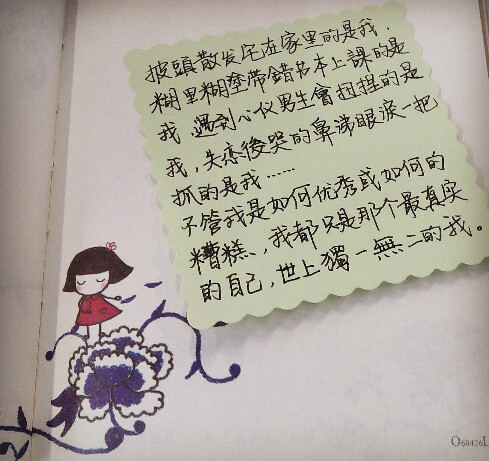 披頭散发宅在家里的是我,
糊里糊塗帶錯书本上課的是
我 遇到心仪男生會扭捏的是
我,失恋後哭的鼻涕眼淚一把
抓的是我……
不管我是如何优秀或如何的
糟糕,我都只是那个最真实
的自己,世上獨一無二的我。
O60426L